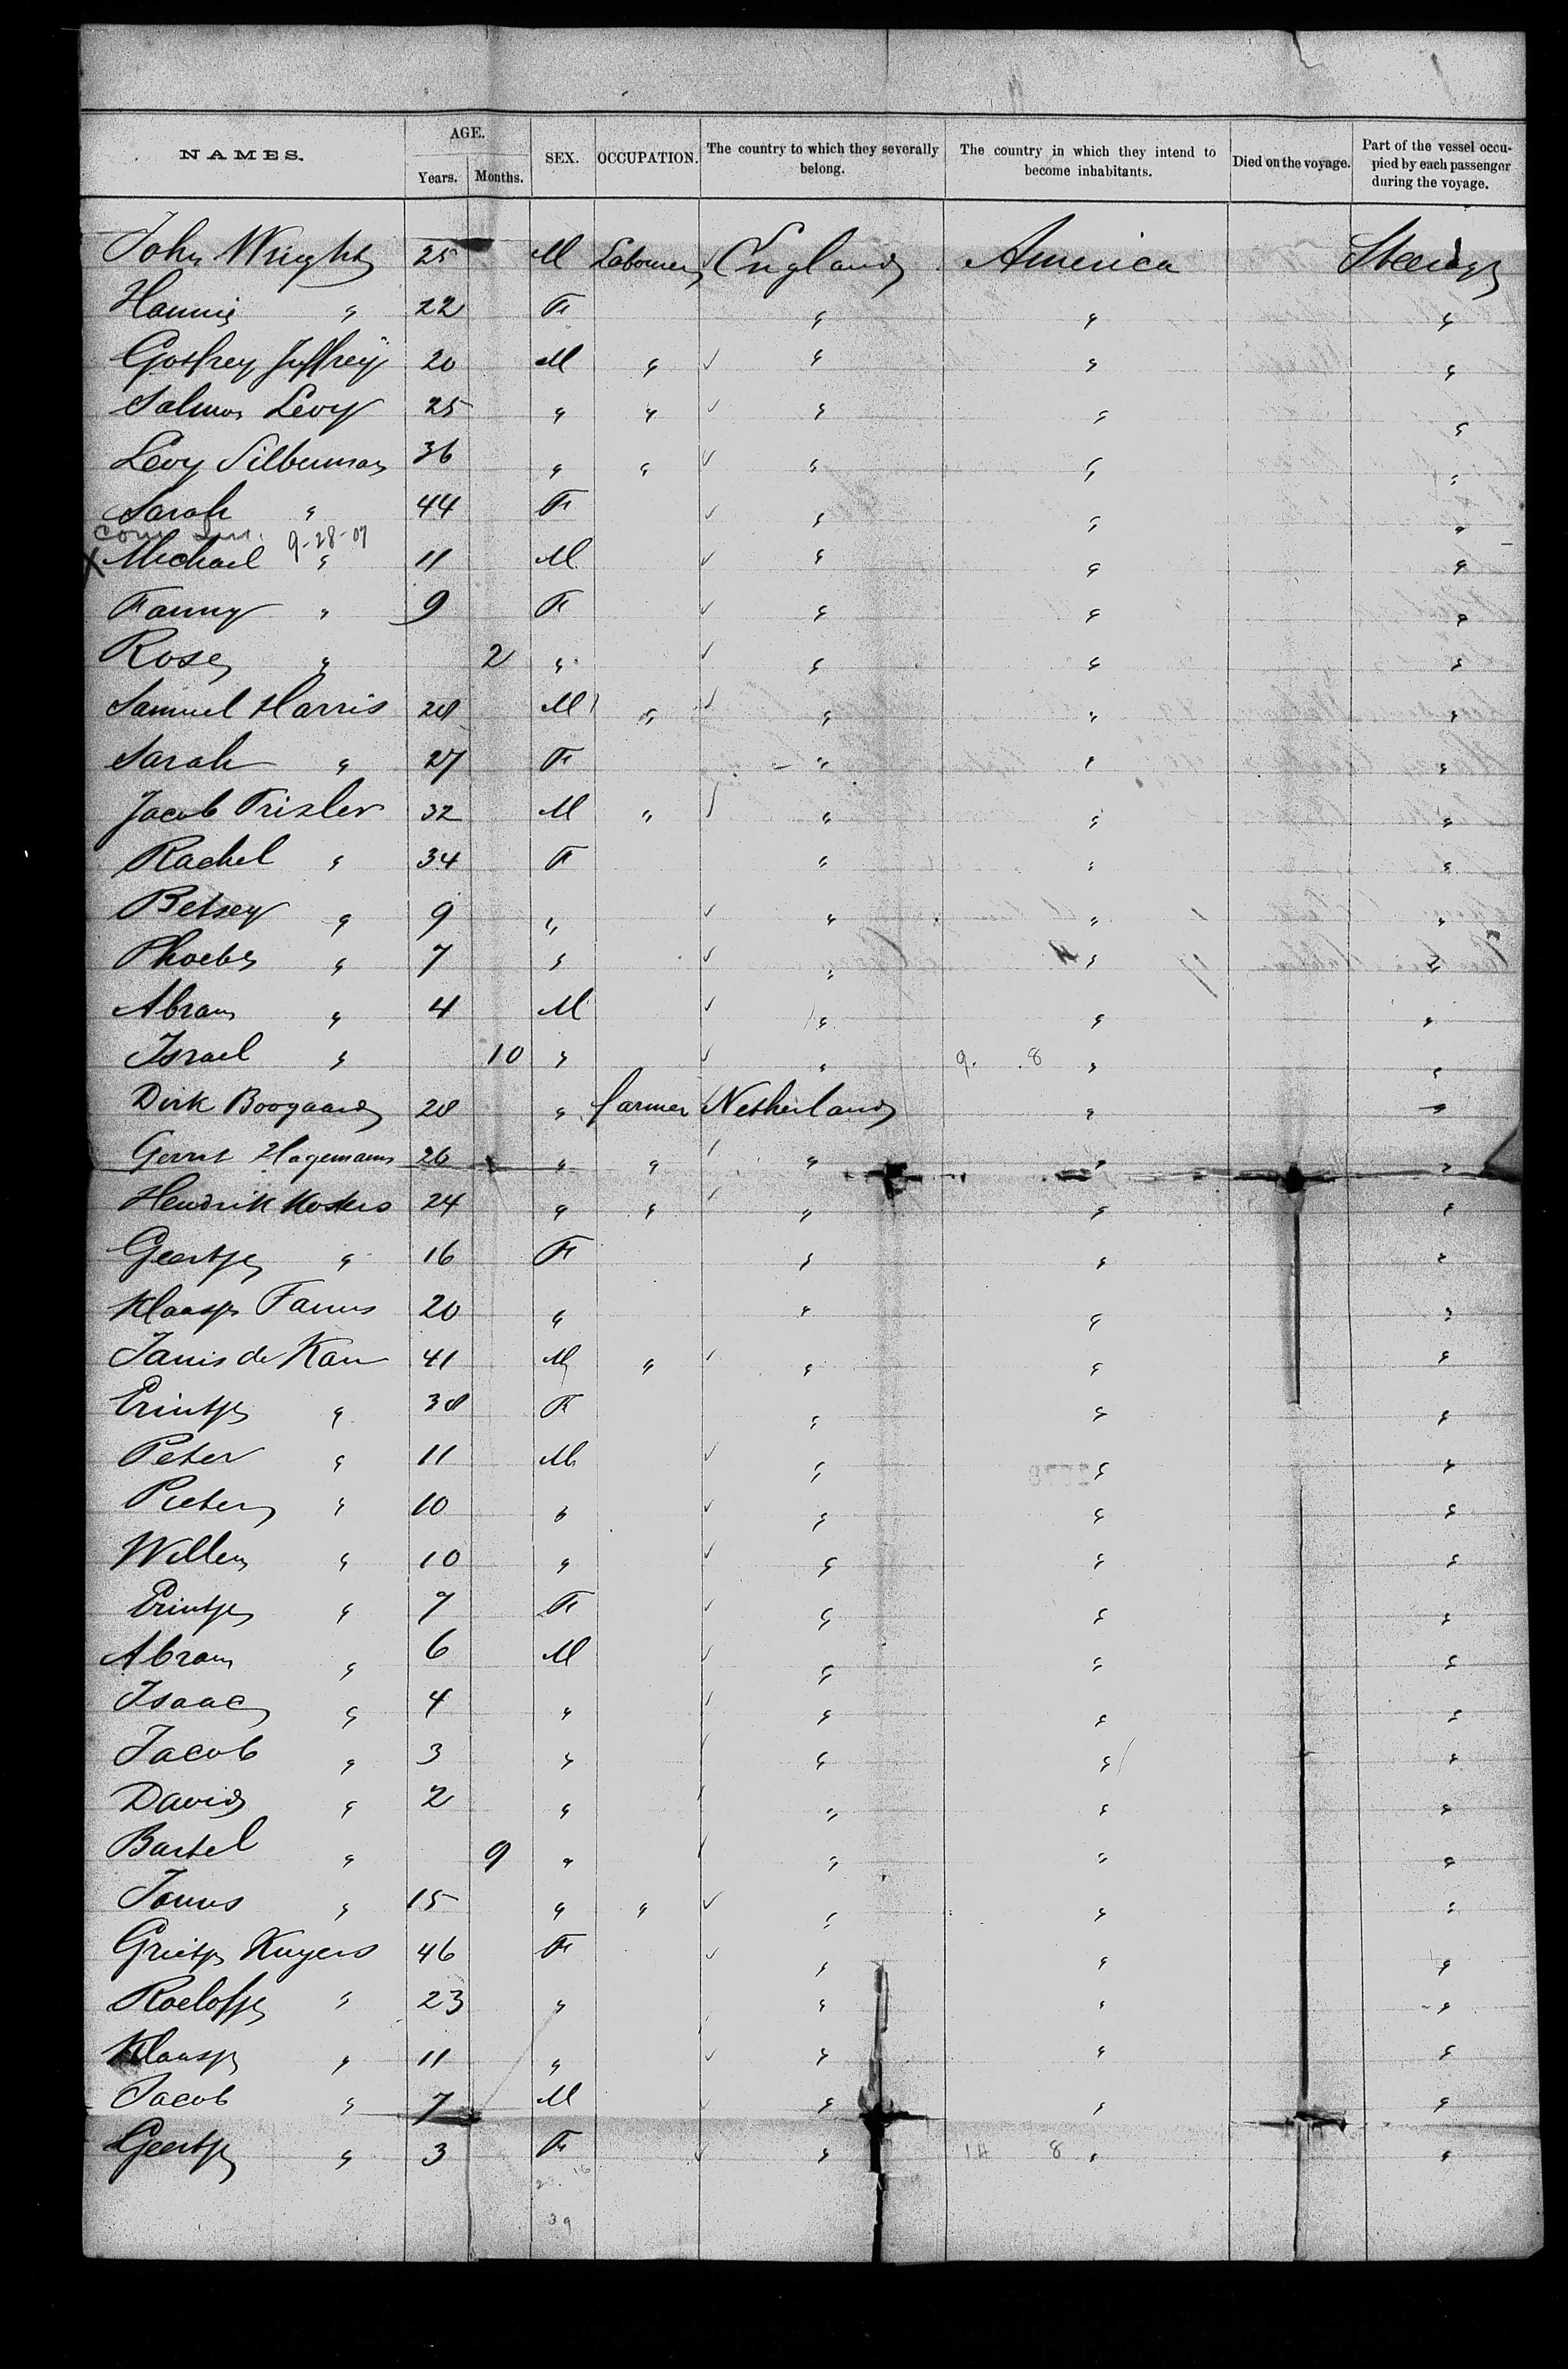 NAMES. AGE. Years. Months. SEX. OCCUPATION. The country to which they severally belong. The country in which they intend to become inhabitants. Died on the voyage. Part of the vessel occupied by each passenger during the voyage.
John Wright 25 M Labourer England America Steerage
Hannie " 22 F " " "
Gotfrey Juffrey 20 M " " " "
Salmon Levy 25 " " " " "
Levy Silberman 36 " " " " "
Sarah " 44 F " " "
9-28-07
X Michael " 11 M " " "
Fanny " 9 F " " "
Rose " 2 " " " "
Samuel Harris 28 M " " " "
Sarah " 27 F " " "
Jacob Trisler 32 M " " " "
Rachel " 34 F " " "
Betsey " 9 " " " "
Phoebe " 7 " " " "
Abram " 4 M " " "
Israel " 10 " " " "
Dirk Boogaard 28 " farmer Netherland " "
Gerrit Hagemann 26 " " " " "
Hendrik Kosters 24 " " " " "
Geertje " 16 F " " "
Klaasje 20 " " " "
Janis de Kam 41 M " " " "
" 38 F " " "
Peter " 11 M " " "
Pieter " 10 " " " "
Willem " 10 " " " "
" 7 F " " "
Abram " 6 M " " "
Isaac " 4 " " " "
Jacob " 3 " " " "
David " 2 " " " "
Bartel " 9 " " " "
" 15 " " " " "
Grietje Kuyers 46 F " " "
Roelofje " 23 " " " "
Klaasje " 11 " " " "
Jacob " 7 M " " "
Geertje " 3 F " " "
23 16
39